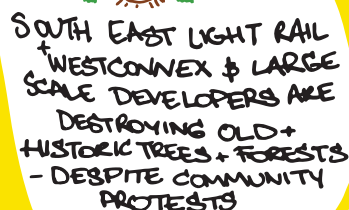 SOUTH EAST LIGHT RAIL
+ WESTCONNEX & LARGE
SCALE DEVELOPERS ARE
DESTROYING OLD +
HISTORIC TREES + FORESTS
- DESPITE COMMUNITY
PROTESTS